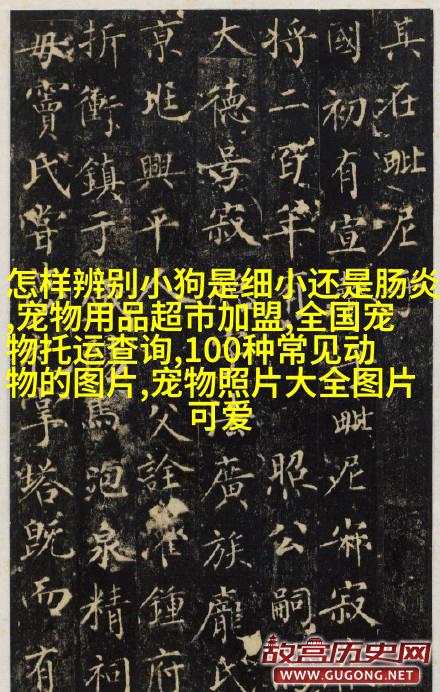 其在毗尼
國初有宣 毗尼 寂
將二百年 照公嗣
大德号寂 廣族龐氏
京兆興平 父詮 鍾府
折衝鎮于 馬 泉精祠
毋竇氏嘗 掌塔既而有
怎样辨别小狗是细小还是肠炎
,宠物用品超市加盟,全国宠
物托运查询,100种常见动
物的图片,宠物照片大全图片
可爱
故宫历史网
WWW.GUGONG.NET